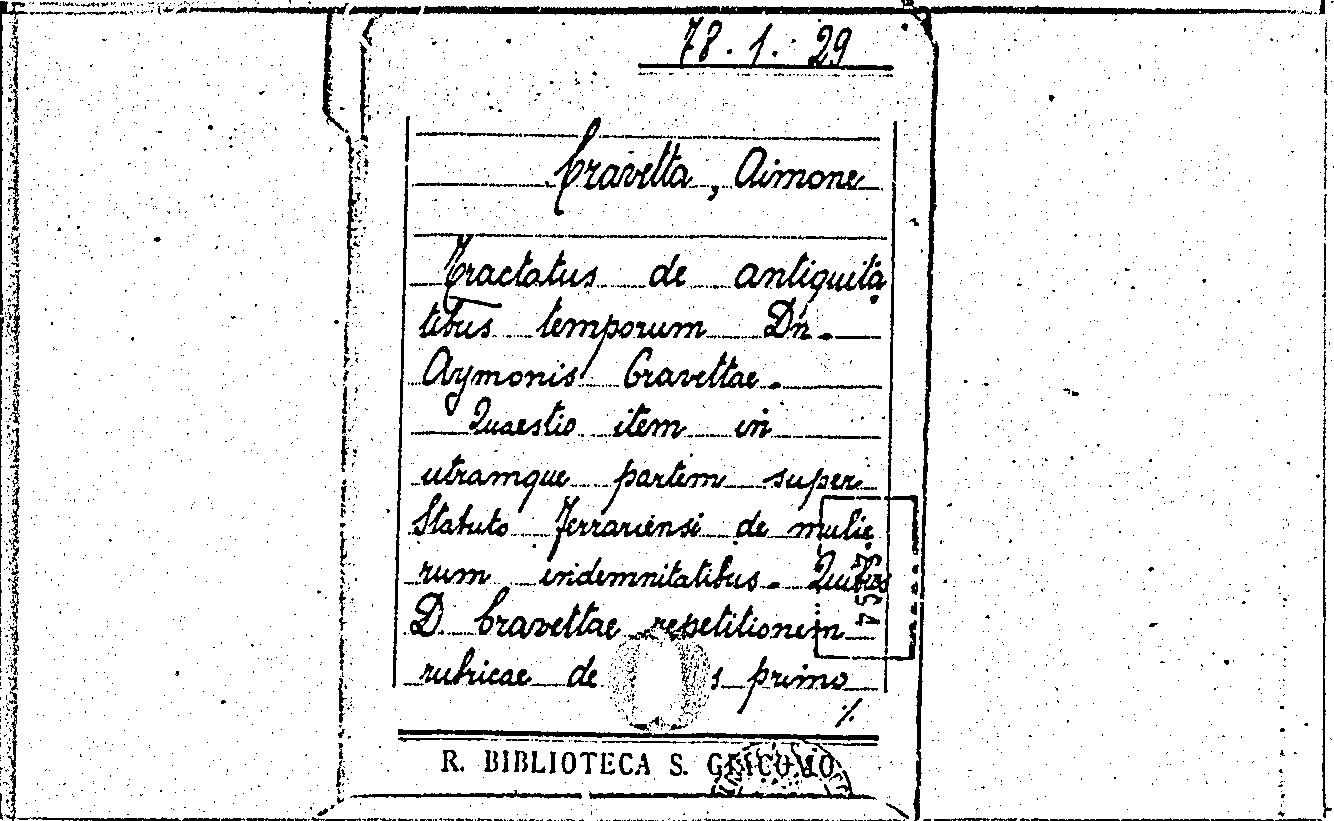 78. 1. 29
Cravetta, Aimone
Tractatus de antiquita
tibus temporum Dn.
Aymonis Cravettae.
Quaestio item in
utramque partem super
Statuto Ferrariensi de mulie
rum indemnitatibus. Quibus
D. Cravettae repetitionem
rubricae de s primo
%
R. BIBLIOTECA S. GIACOMO